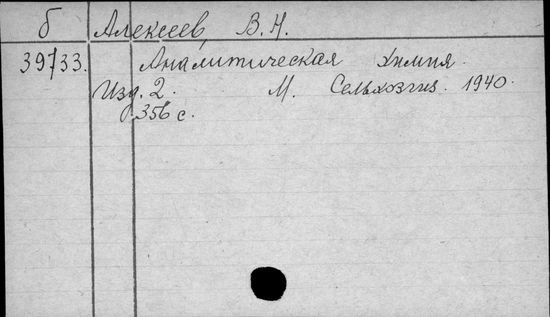 б Алексеев, В. Н.
39733. Аналитическая химия.
Изд. 2. М. Сельхозгиз. 1940
356 с.